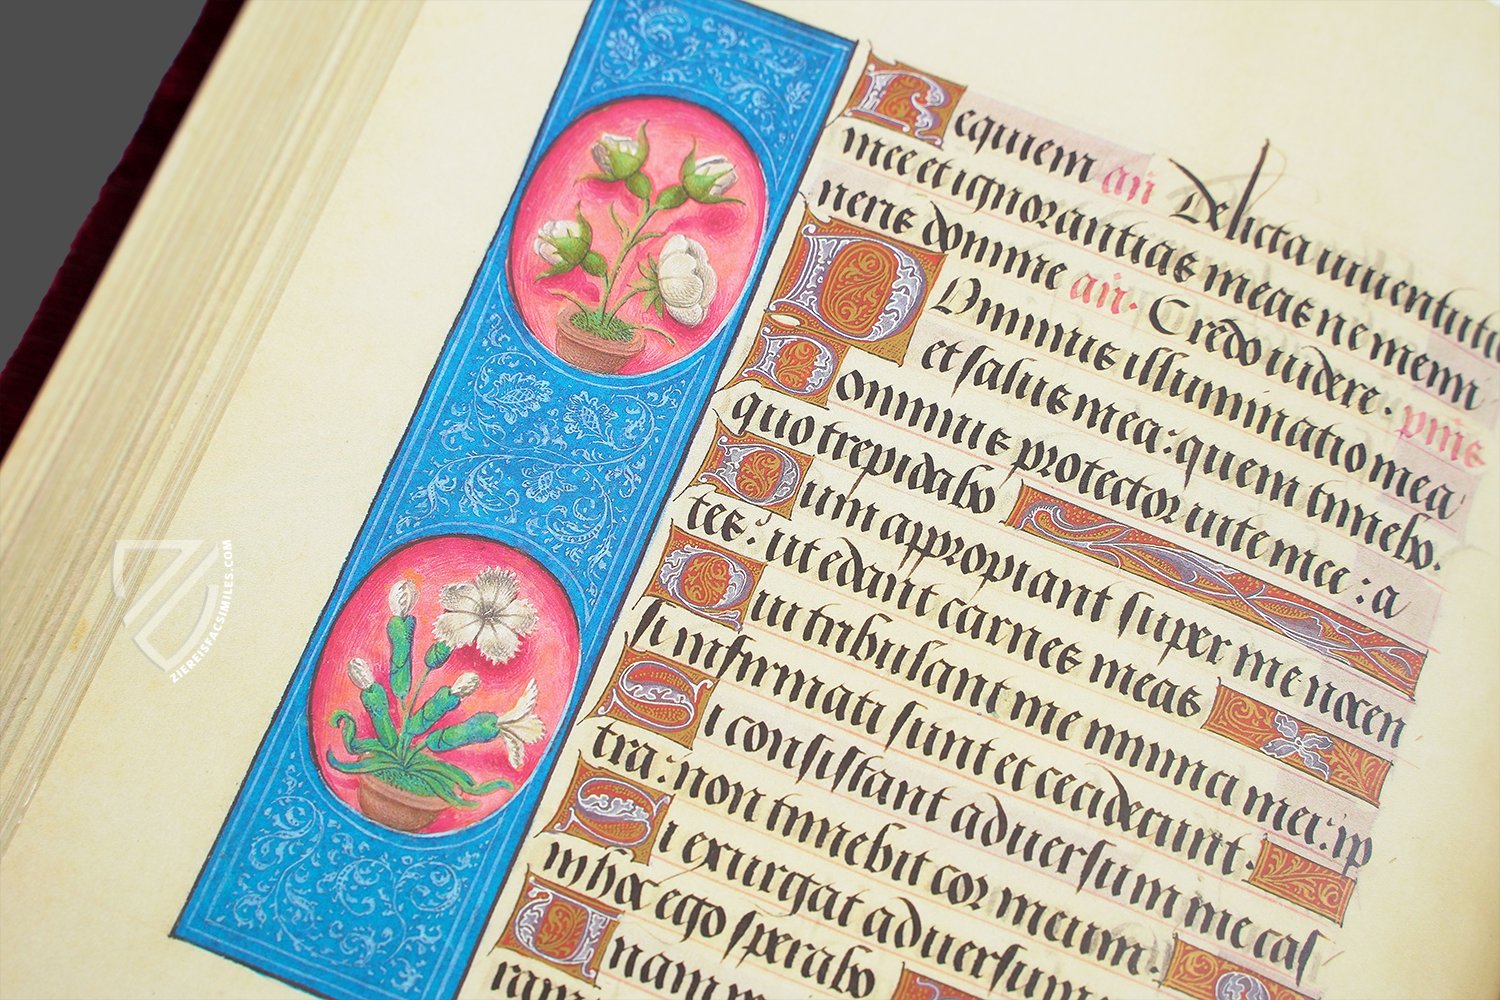 Requiem añ Delicta iuuentutis
mee et ignorantias meas ne memi
neris domine añ. Credo uidere. pms
Dominus illuminatio mea
et salus mea: quem timebo.
Dominus protector uite mee: a
quo trepidabo
Dum appropiant super me nocen
tes: ut edant carnes meas
Qui tribulant me inimici mei: ip
si infirmati sunt et ceciderunt.
Si consistant aduersum me cas
tra: non timebit cor meum.
Si exurgat aduersum
in hoc ego sperabo
Unam
ZIEREISFACSIMILES.COM